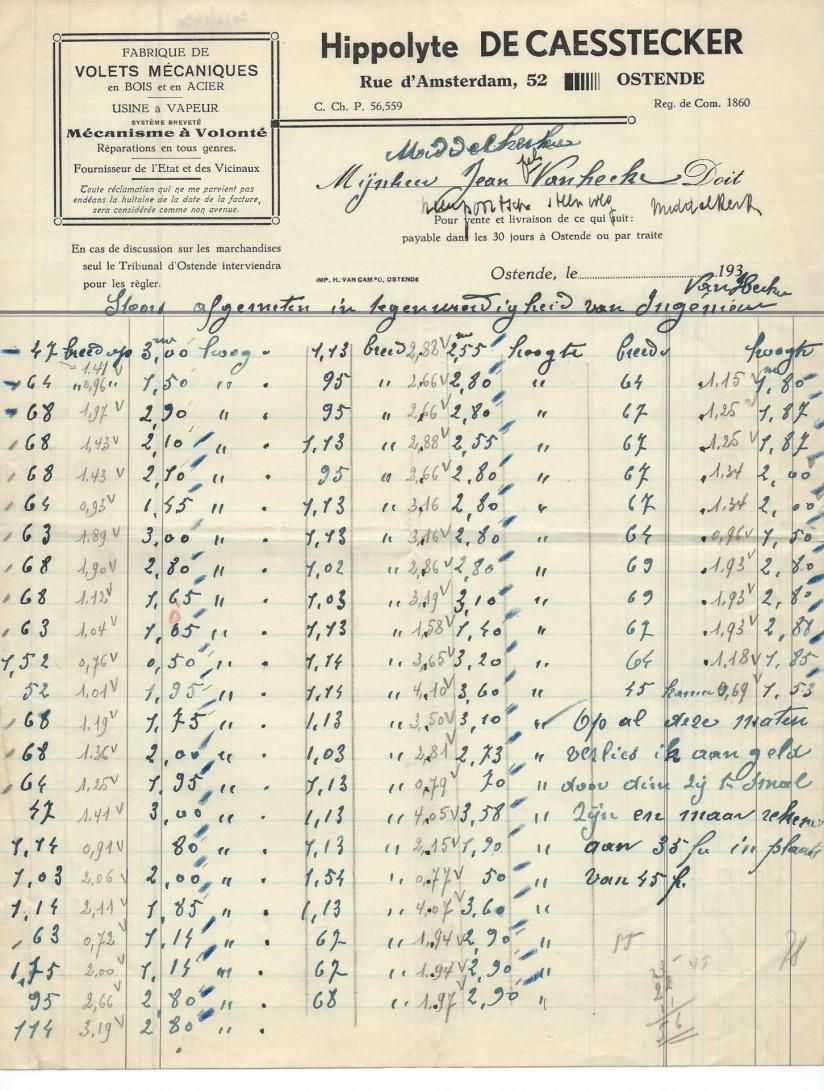 FABRIQUE DE
VOLETS MÉCANIQUES
en BOIS et en ACIER
USINE à VAPEUR
SYSTÈME BREVETÉ
Mécanisme à Volonté
Réparations en tous genres.
Fournisseur de l'Etat et des Vicinaux
Toute réclamation qui ne me parvient pas
endéans la huitaine de la date de la facture,
sera considérée comme non avenue.
Hippolyte DE CAESSTECKER
Rue d'Amsterdam, 52 OSTENDE
C. Ch. P. 56,559 Reg. de Com. 1860
Middelkerke
Mijnheer Jean Vanhecke Doit
steenweg Middelkerk
Pour vente et livraison de ce qui suit:
payable dans les 30 jours à Ostende ou par traite
En cas de discussion sur les marchandises
seul le Tribunal d'Ostende interviendra
pour les règler.
IMP. H. VAN CAMPO, OSTENDE
Ostende, le 193
Van Hecke
Stoors afgemeten in tegenwoordigheid van Ingénieur
47 breed op 1.41 3,00 hoog 1,13 breed 2,88 2,55 hoogte breedt hoogte
64 " 0,96 " 1,50 " 95 " 2,66 2,80 " 64 1.15 1,80
68 1,97 2,90 " 95 2,66 2,80 " 67 1,25 1,87
68 1,43 2,10 " 1,13 " 2,88 2,55 " 67 1,25 1,87
68 1.43 2,10 " 95 " 2,66 2,80 " 67 1.34 2,00
64 0,93 1,45 " 1,13 " 3,16 2,80 " 67 1.34 2,00
63 1.89 3,00 " 1,13 " 3,16 2,80 " 64 0,96 1,50
68 1,90 2,80 " 1,02 " 2,86 2,80 " 69 1.93 2,80
68 1.12 1,65 " 1,03 " 3,19 3,10 " 69 1.93 2,80
63 1,04 1,65 " 1,13 " 1,58 1,40 " 67 1,93 2,88
1,52 0,76 0,50 " 1,14 " 3,65 3,20 " 64 1,18 1,85
52 1,01 1,95 " 1,14 " 4,10 3,60 " 45 0,69 1,53
68 1.19 1,75 " 1,13 " 3,50 3,10 " Op al deze maten
68 1.36 2,00 " 1,03 " 2,81 2,73 " verlies ik aan geld
64 1.25 1,95 " 1,13 " 0,79 70 " door dien zij te smal
47 1.41 3,00 " 1,13 " 4,05 3,58 " Zijn en maar reken
1,14 0,91 80 " 1,13 " 2,15 1,90 " aan 35 fr in plaats
1,03 2,06 2,00 " 1,54 " 0,77 50 " van 45 fr.
1,14 2,11 1,85 " 1,13 " 4,07 3,60 "
63 0,72 1,14 " 67 " 1,94 2,90 "
1,75 2,00 1,14 " 67 " 1.94 2,90 "
95 2,66 2,80 " 68 " 1.97 2,90 "
114 3,19 2,80 "